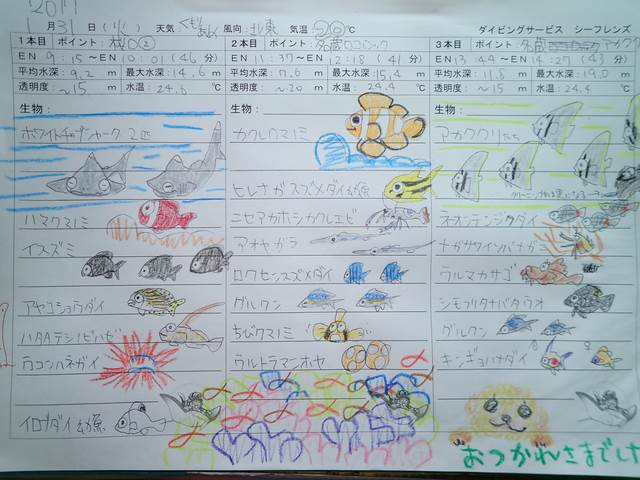 2017
1月31日(火) 天気: くもり 風向: 北東 気温: 20℃ ダイビングサービス シーフレンズ
1本目 ポイント: 桜口②
EN 9:15~EN 10:01(46分)
平均水深: 9.2 m 最大水深: 14.6 m
透明度: ~15 m 水温: 24.6 ℃
生物:
ホワイトチップシャーク 2匹
ハマクマノミ
イスズミ
アヤコショウダイ
ハタタテシノビハゼ
ウコンハネガイ
イロブダイ幼魚
2本目 ポイント: 名蔵
EN 11:37~EN 12:18(41分)
平均水深: 7.6 m 最大水深: 15.4 m
透明度: ~20 m 水温: 24.4 ℃
生物:
カクレクマノミ
ヒレナガスズメダイ幼魚
ニセアカホシカクレエビ
アオヤガラ
ロクセンスズメダイ
グルクン
ちびクマノミ
ウルトラマンホヤ
3本目 ポイント: 名蔵
EN 13:44~EN 14:27(43分)
平均水深: 11.8 m 最大水深: 19.0 m
透明度: ~15 m 水温: 24.4 ℃
生物:
アカククリたち
ネオンテンジクダイ
ナガサワイソバナガニ
ウルマカサゴ
シモフリタナバタウオ
グルクン
キンギョハナダイ
おつかれさまでした